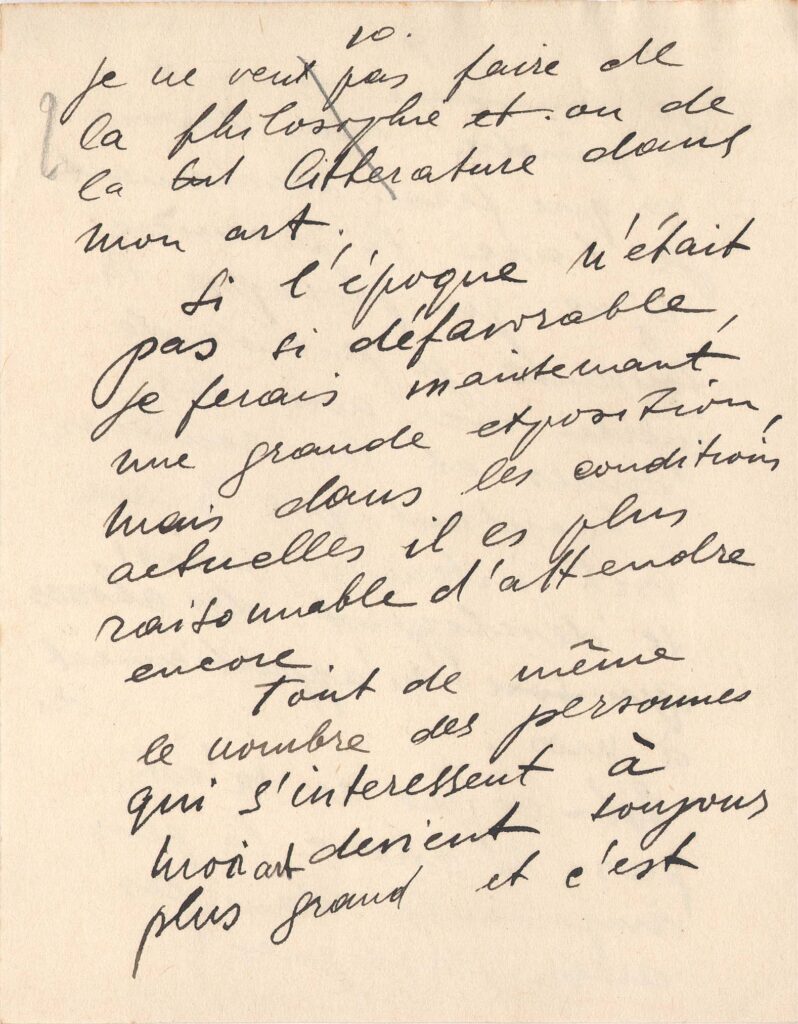 10.
je ne veut pas faire de
la philosophie et ou de
la but litterature dans
mon art.
Si l'époque n'était
pas si défavorable,
je ferais maintenant
une grande exposition,
mais dans les conditions
actuelles il es plus
raisonnable d'attendre
encore.
Tout de même
le nombre des personnes
qui s'interessent à
mon art devient toujours
plus grand et c'est